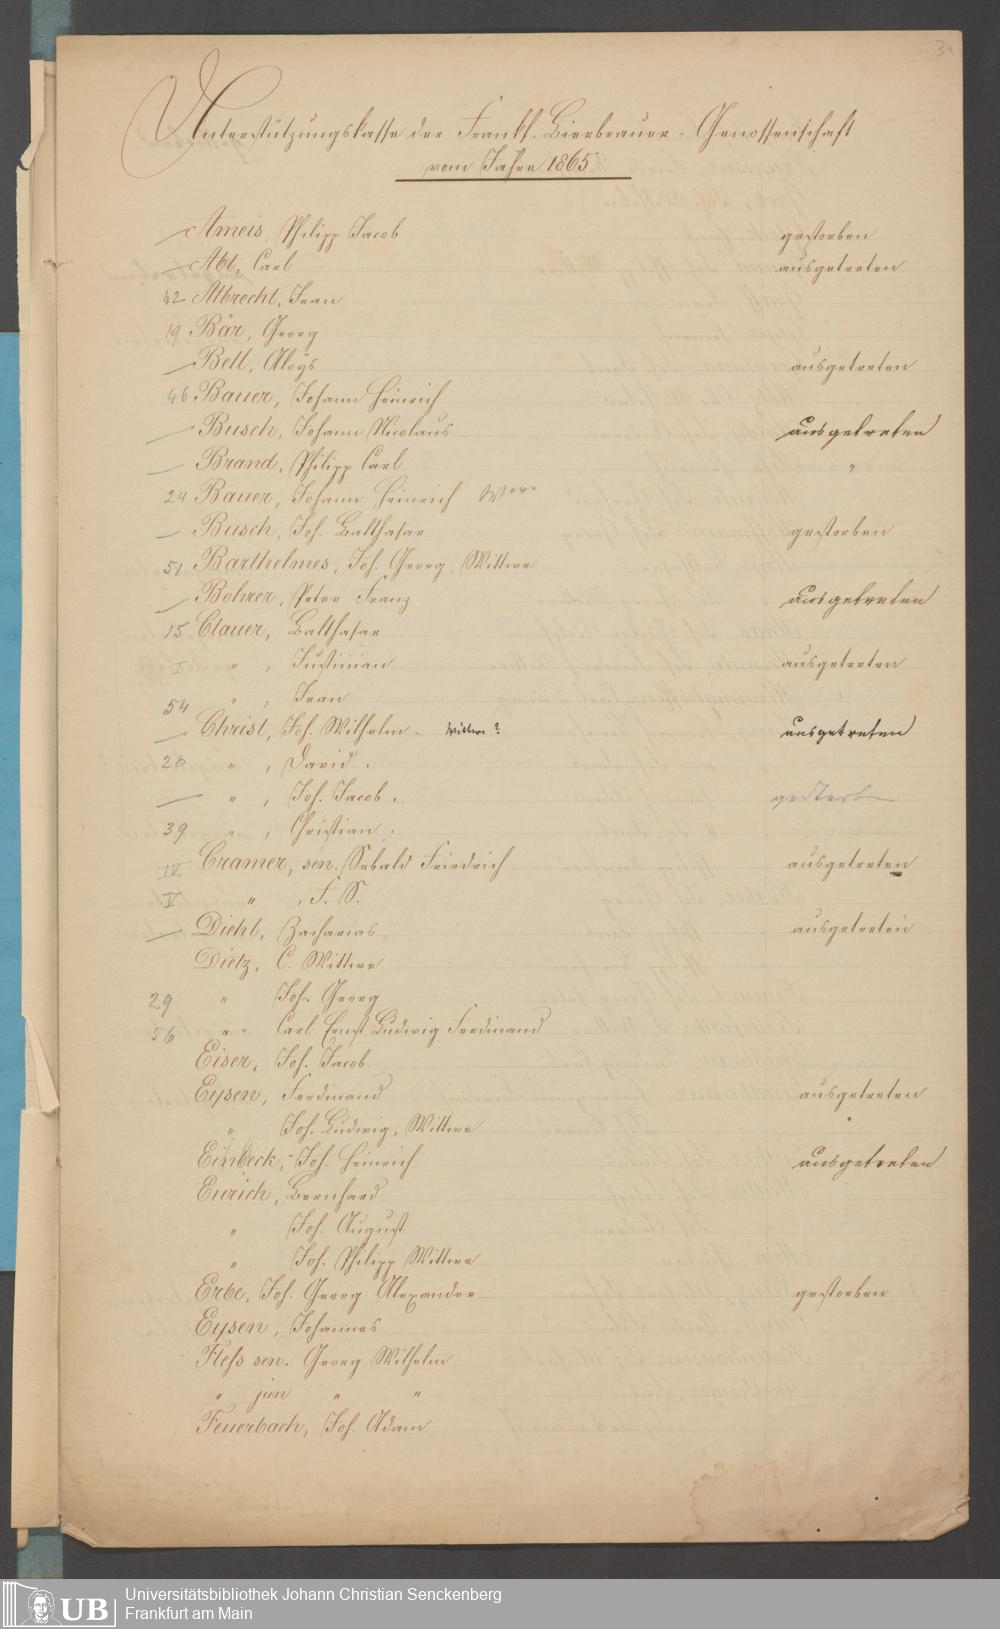 34
Unterstützungskasse der Frankf. Bierbrauer-Genossenschaft
vom Jahre 1865
— Ameis, Philipp Jacob gestorben
— Abt, Carl ausgetreten
42 Albrecht, Jean
19 Bär, Georg
— Bell, Aloÿs ausgetreten
46 Bauer, Johann Heinrich
— Busch, Johann Nicolaus ausgetreten
— Brand, Philipp Carl "
24 Bauer, Johann Heinrich
— Busch, Joh. Balthasar gestorben
51 Barthelmes, Joh. Georg, Wittwe
— Bohrer, Peter Franz ausgetreten
15 Clauer, Balthasar
I " , Justinian ausgetreten
54 " , Jean
— Christ, Joh. Wilhelm Wittwe ? ausgetreten
26 " , David
— " , Joh. Jacob
39 " , Christian
IV Cramer, sen. Sebald Friedrich ausgetreten
V " , F. S.
— Diehl, Zacharias ausgetreten
Dietz, C. Wittwe
29 " Joh. Georg
56 " Carl Ernst Ludwig Ferdinand
Eiser, Joh. Jacob.
Eysen, Ferdinand ausgetreten
" Joh. Ludwig, Wittwe
Einbeck, Joh. Heinrich ausgetreten
Eurich, Bernhard
" Joh. August
" Joh. Philipp Wittwe
Erbe, Joh. Georg Alexander gestorben
Eysen, Johannes
Fleß sen. Georg Wilhelm
" jun " "
Feuerbach, Joh. Adam
UB
Universitätsbibliothek Johann Christian Senckenberg
Frankfurt am Main